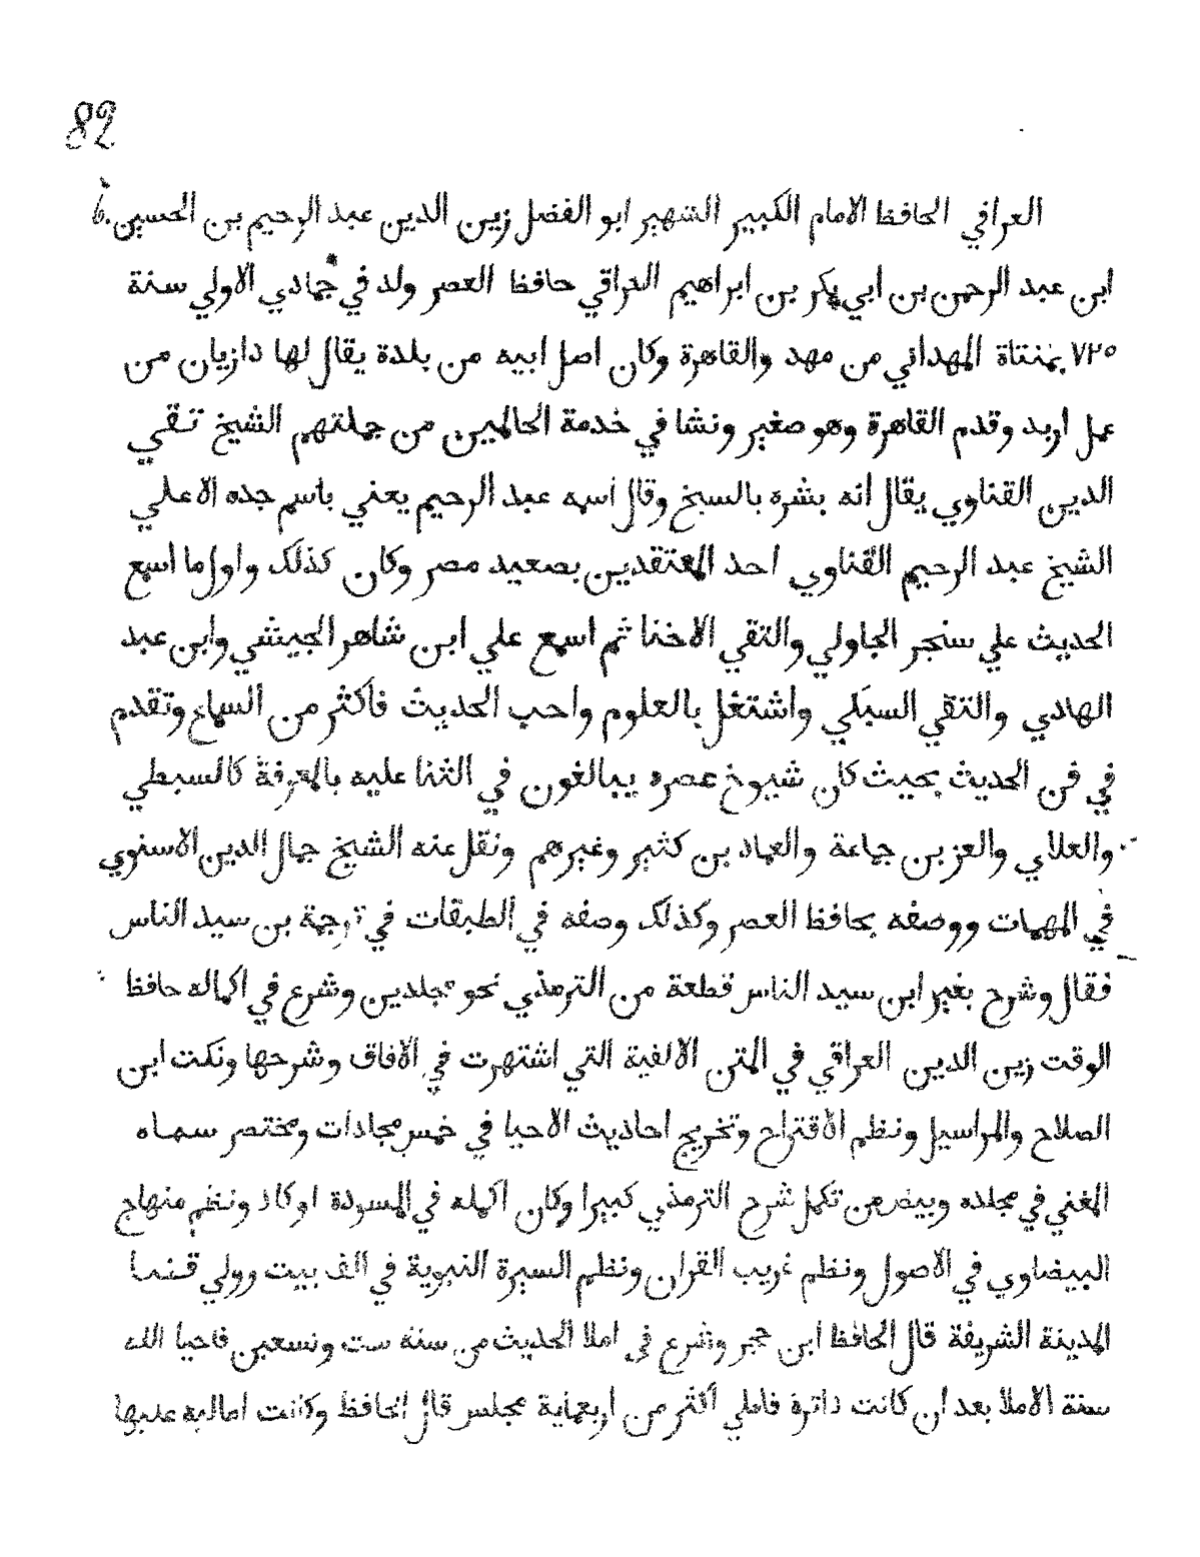 82
العراقي الحافظ الامام الكبير الشهير ابو الفضل زين الدين عبد الرحيم بن الحسين
ابن عبد الرحمن بن ابي بكر بن ابراهيم العراقي حافظ العصر ولد في جمادي الاولي سنة
٧٢٥ بمنتاة المهداني من مهد والقاهرة وكان اصل ابيه من بلدة يقال لها دازيان من
عمل اربد وقدم القاهرة وهو صغير ونشا في خدمة الحالمين من جملتهم الشيخ تقي
الدين القناوي يقال انه بشره بالسبخ وقال اسمه عبد الرحيم يعني باسم جده الاعلي
الشيخ عبد الرحيم القناوي احد المعتقدين بصعيد مصر وكان كذلك واول ما اسمع
الحديث علي سنجر الجاولي والتقي الاخنا ثم اسمع علي ابن شاهر الجيشي وابن عبد
الهادي والتقي السبكي واشتغل بالعلوم واحب الحديث فاكثر من السماع وتقدم
في فن الحديث بحيث كان شيوخ عصره يبالغون في الثنا عليه بالمعرفة كالسبطي
والعلاي والعز بن جماعة والعماد بن كثير وغيرهم ونقل عنه الشيخ جمال الدين الاسنوي
في المهمات ووصفه بحافظ العصر وكذلك وصفه في الطبقات في ترجمة بن سيد الناس
فقال وشرح بغير ابن سيد الناس قطعة من الترمذي نحو مجلدين وشرع في اكماله حافظ
الوقت زين الدين العراقي في المتن الالفية التي اشتهرت في الآفاق وشرحها ونكت ابن
الصلاح والمراسيل ونظم الاقتراح وتخريج احاديث الاحيا في خمس مجادات ومختصر سماه
المغني في مجلده وبيض من تكمل شرح الترمذي كبيرا وكان اكمله في المسودة او كاد ونظم منهاج
البيضاوي في الاصول ونظم غريب القران ونظم السيرة النبوية في الف بيت وولي قضا
المدينة الشريفة قال الحافظ ابن حجر وشرع في املا الحديث من سنة ست وتسعين فاحيا الله
سنة الاملا بعد ان كانت داثرة فاملي اكثر من اربعماية مجلس قال الحافظ وكانت اماليه عليها